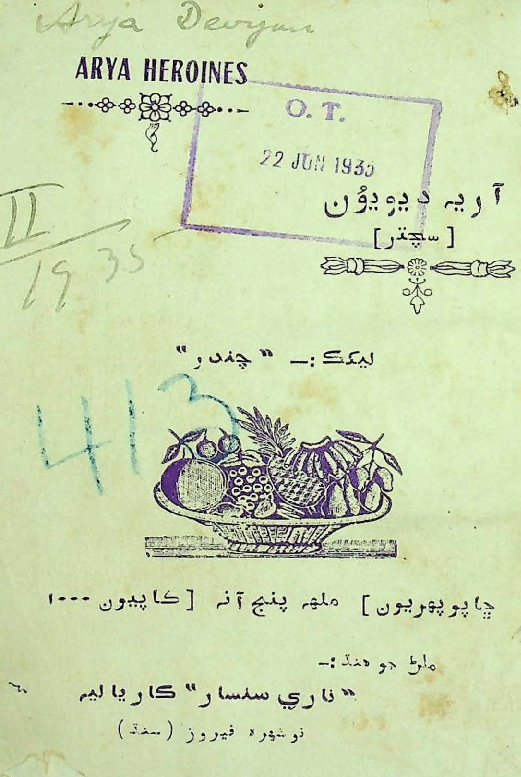 Arya Devyun
ARYA HEROINES
O. T.
22 JUN 1935
آريه ديويون
[سچتر]
II
1935
ليکڪ :- "چندر"
413
ڇاپو پهريون] ملهه پنج آنه [ڪاپيون ١٠٠٠
ملڻ جو هنڌ:-
"ناري سنسار" ڪارياليه
نوشهره فيروز (سنڌ)